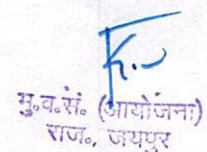 मु॰व॰सं॰ (आयोजना)
राज॰, जयपुर